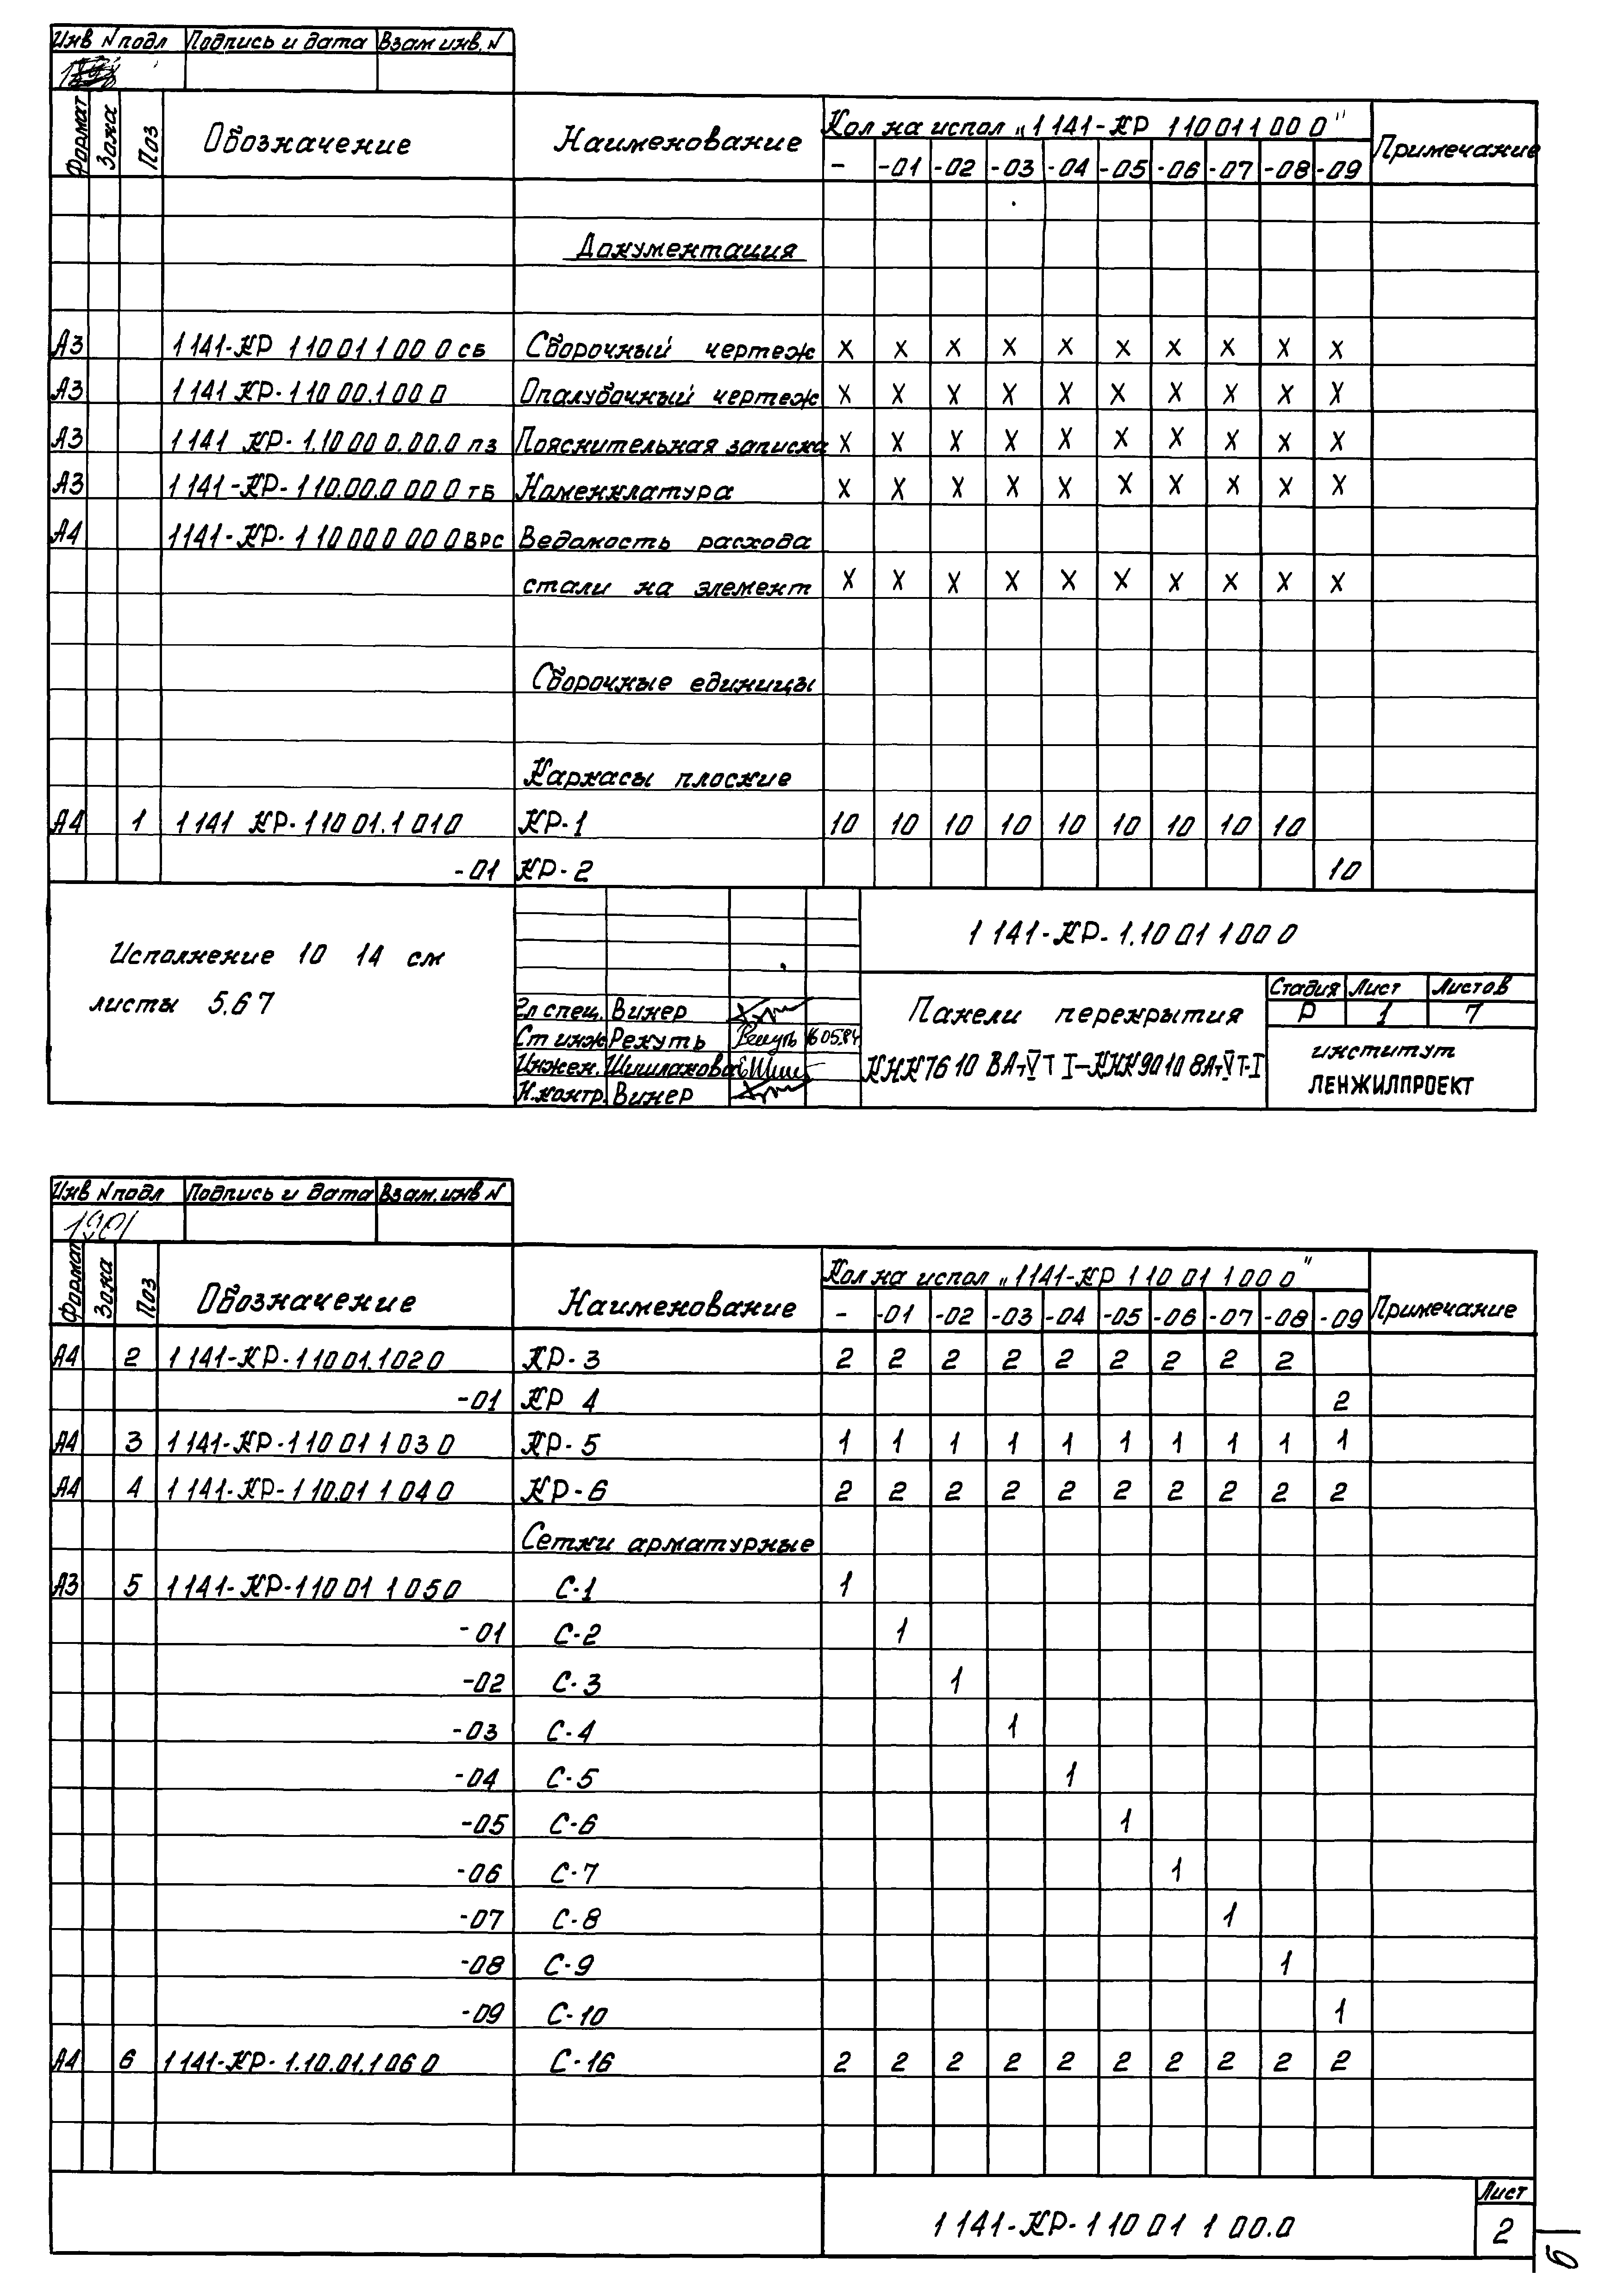 Инв N подл Подпись и дата Взам инв. N
Формат Зона Поз Обозначение Наименование Кол на испол „1 141-КР 110 01 1 00 0" Примечание
- -01 -02 -03 -04 -05 -06 -07 -08 -09
Документация
А3 1 141-КР 110 01 1 00 0 СБ Сборочный чертеж X X X X X X X X X X
А3 1 141 КР-110 00.1 00 0 Опалубочный чертеж X X X X X X X X X X
А3 1 141 КР-1.10 00 0.00.0 ПЗ Пояснительная записка X X X X X X X X X X
А3 1 141-КР-1 10.00.0 00 0 ТБ Номенклатура X X X X X X X X X X
А4 1141-КР-1 10 00 0 00 0 ВРС Ведомость расхода
стали на элемент X X X X X X X X X X
Сборочные единицы
Каркасы плоские
А4 1 1 141 КР-1 10 01.1 010 КР-1 10 10 10 10 10 10 10 10 10
-01 КР-2 10
Исполнение 10 14 см
листы 5,6 7
1 141-КР-1.10 01 1 00 0
Гл спец. Винер
Ст инж Рекуть 16 05.84
Инжен. Шишланова
Н.контр. Винер
Панели перекрытия
КНК76 10 8Ат-V Т I-КНК90 10 8Ат-V Т-I
Стадия Лист Листов
Р 1 7
институт
ЛЕНЖИЛПРОЕКТ
Инв N подл Подпись и дата Взам. инв N
Формат Зона Поз Обозначение Наименование Кол на испол „1141-КР 1 10 01 1 00 0" Примечание
- -01 -02 -03 -04 -05 -06 -07 -08 -09
А4 2 1 141-КР-1 10 01.1 02 0 КР-3 2 2 2 2 2 2 2 2 2
-01 КР 4 2
А4 3 1 141-КР-1 10 01 1 03 0 КР-5 1 1 1 1 1 1 1 1 1 1
А4 4 1 141-КР-1 10.01 1 04 0 КР-6 2 2 2 2 2 2 2 2 2 2
Сетки арматурные
А3 5 1 141-КР-1 10 01 1 05 0 С-1 1
-01 С-2 1
-02 С-3 1
-03 С-4 1
-04 С-5 1
-05 С-6 1
-06 С-7 1
-07 С-8 1
-08 С-9 1
-09 С-10 1
А4 6 1 141-КР-1.10.01.1 06 0 С-16 2 2 2 2 2 2 2 2 2 2
1 141-КР-1 10 01 1 00.0
Лист
2
6